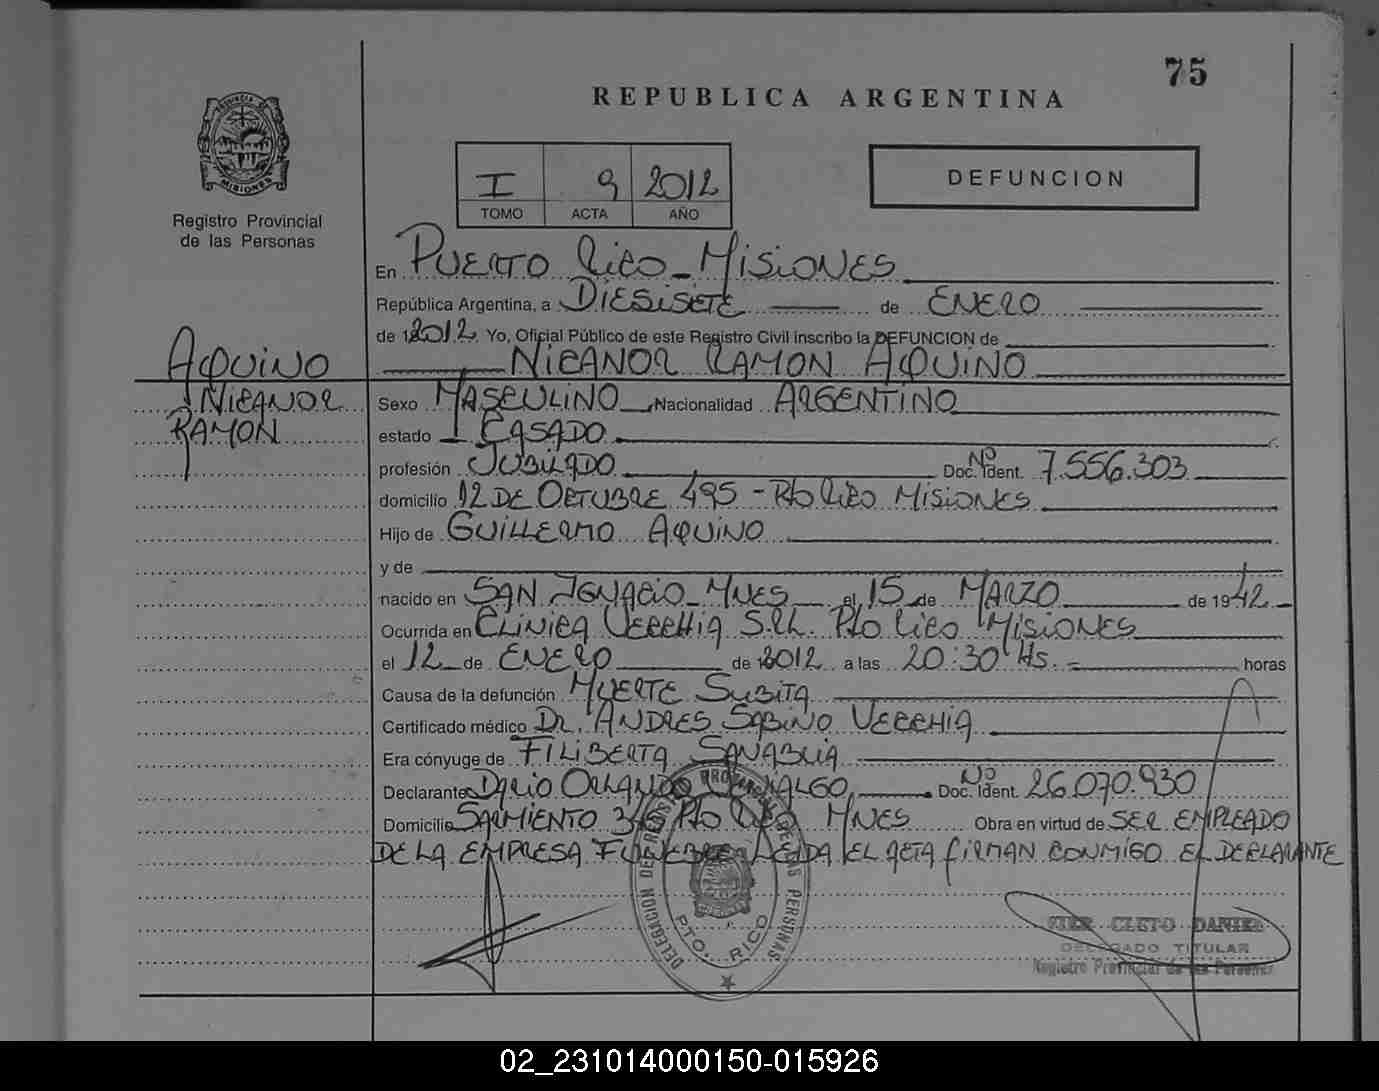 75
REPUBLICA ARGENTINA
PROVINCIA DE
MISIONES
Registro Provincial
de las Personas
I 9 2012
TOMO ACTA AÑO
DEFUNCION
En PUERTO RICO - MISIONES
República Argentina, a DIESISETE de ENERO
de 2012. Yo, Oficial Público de este Registro Civil inscribo la DEFUNCION de
NICANOR RAMON AQUINO
AQUINO
NICANOR
RAMON
Sexo MASCULINO Nacionalidad ARGENTINO
estado CASADO
profesión JUBILADO Doc. Ident. Nº 7.556.303
domicilio 12 DE OCTUBRE 495 - Pto RICO MISIONES
Hijo de GUILLERMO AQUINO
y de
nacido en SAN IGNACIO - MNES el 15 de MARZO de 1942
Ocurrida en CLINICA VECCHIA S.R.L. Pto RICO MISIONES
el 12 de ENERO de 2012 a las 20:30 Hs. horas
Causa de la defunción MUERTE SUBITA
Certificado médico DR. ANDRES SABINO VECCHIA
Era cónyuge de FILIBERTA SANABRIA
Declarante DARIO ORLANDO Doc. Ident. Nº 26.070.930
Domicilio SARMIENTO Pto RICO MNES Obra en virtud de SER EMPLEADO
DE LA EMPRESA FUNEBRE LEIDA EL ACTA FIRMAN CONMIGO EL DECLARANTE
DELEGACION DEL REGISTRO PROVINCIAL DE LAS PERSONAS
PTO. RICO
CLETO DANIEL
DELEGADO TITULAR
Registro Provincial de las Personas
02_231014000150-015926